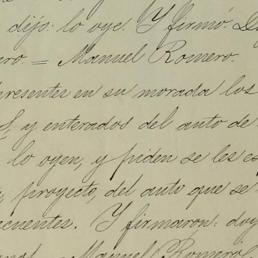 dijo: lo oye. Y firmó. D
ero = Manuel Romero.
presentes en su morada los
y enterados del auto de
lo oyen, y piden se les es
proyecto, del auto que se
cuentes. Y firmaron: doy
Manuel Romeral